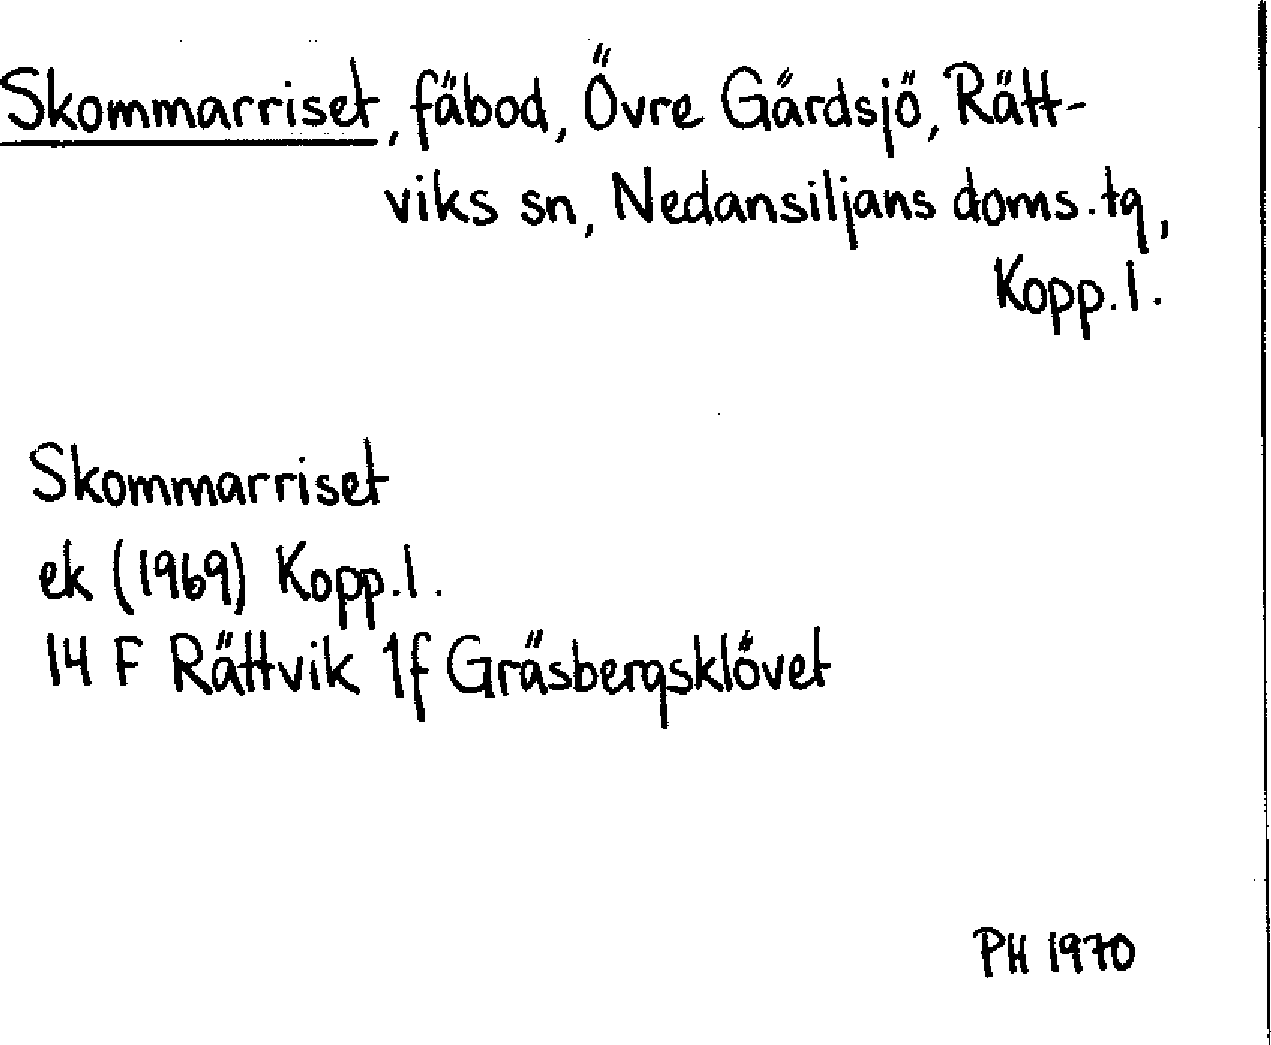 Skommarriset, fäbod, Övre Gärdsjö, Rätt-
viks sn, Nedansiljans doms.tg,
Kopp.l.
Skommarriset
ek (1969) Kopp.l.
14 F Rättvik 1f Gräsbergsklövet
PH 1970